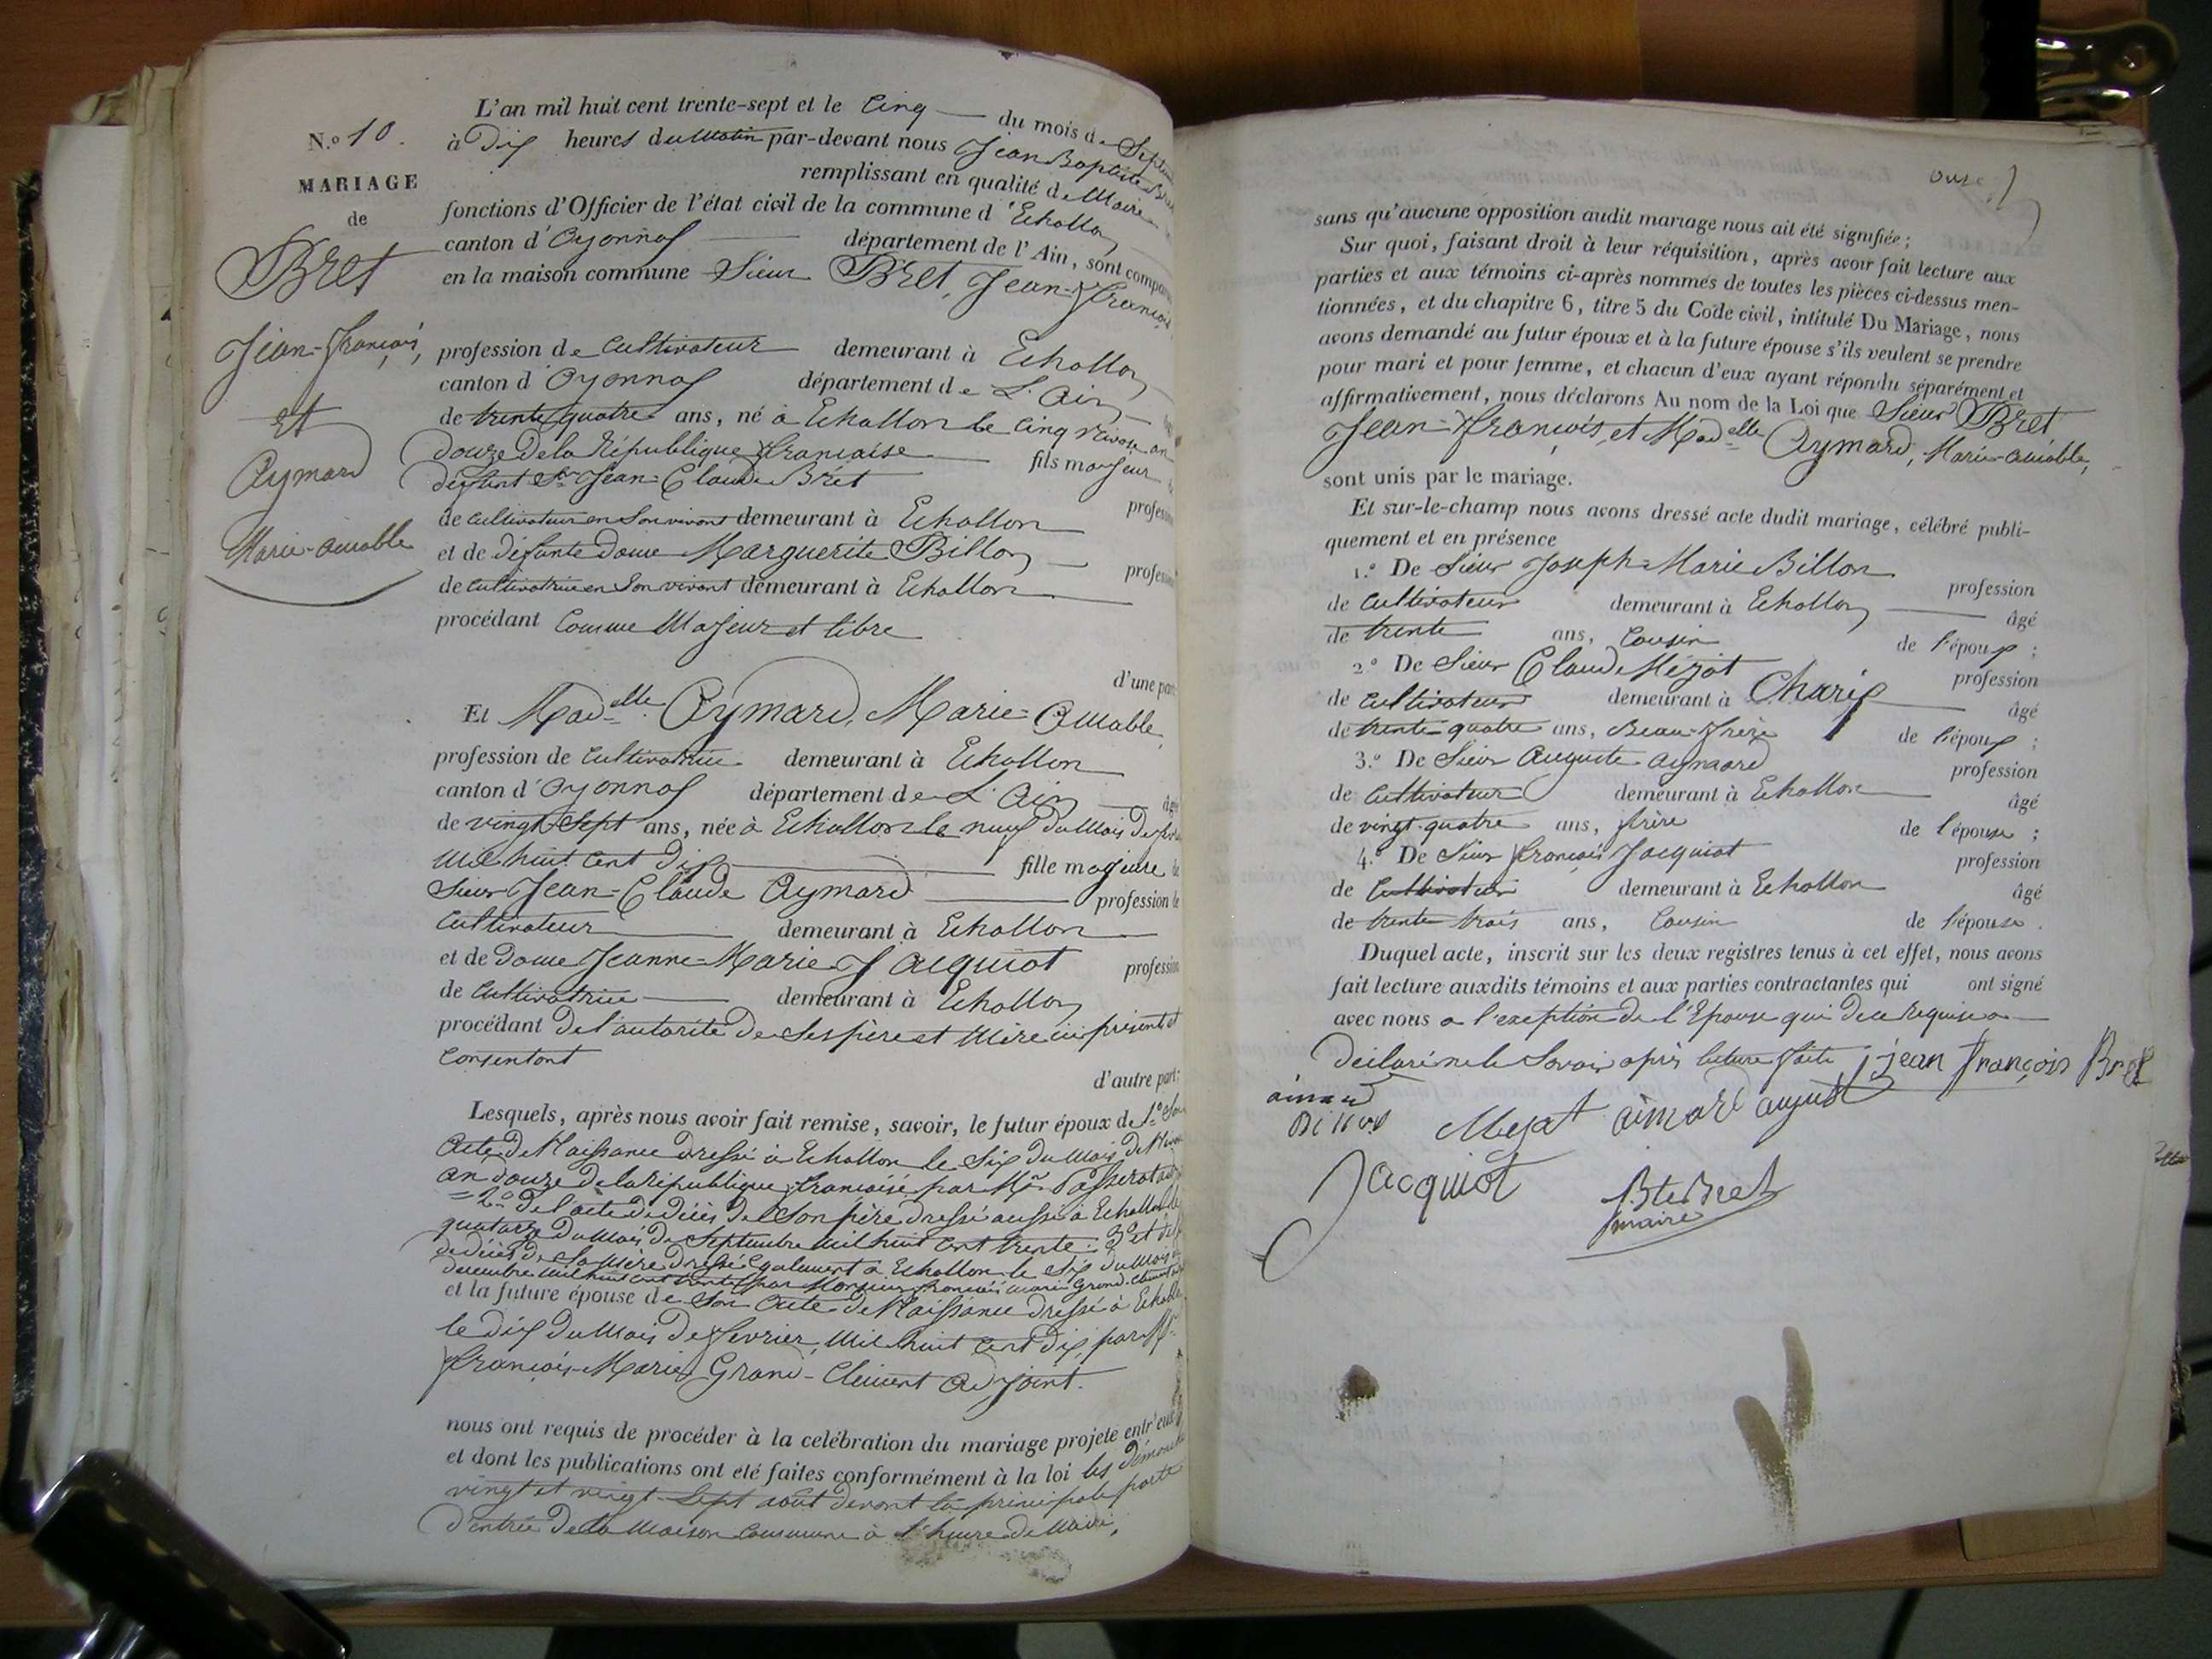 N.o 10.
MARIAGE
de
Bret
Jean-François,
et
Aymard
Marie-amable
L'an mil huit cent trente-sept et le Cinq du mois de
à Dix heures du Matin par-devant nous Jean Baptiste
remplissant en qualité de Maire
fonctions d'Officier de l'état civil de la commune d'Echallon
canton d'Oyonnax département de l'Ain, sont
en la maison commune Sieur Bret, Jean-François
profession de Cultivateur demeurant à Echallon
canton d'Oyonnax département de L'Ain
de trente quatre ans, né à Echallon le cinq nivose an
douze de la République française fils majeur
défunt Sr Jean-Claude Bret
de Cultivateur en Son vivant demeurant à Echallon
et de défunte dame Marguerite Billon
de Cultivatrice en Son vivant demeurant à Echallon
procédant Comme Majeur et libre
d'une part
Et Madelle Aymard, Marie-Amable,
profession de Cultivatrice demeurant à Echallon
canton d'Oyonnax département de L'Ain
de vingt-Sept ans, née à Echallon le neuf du Mois de
Mil huit Cent Dix fille majeure
Sieur Jean-Claude Aymard profession de
Cultivateur demeurant à Echallon
et de dame Jeanne-Marie Jacquiot profession
de Cultivatrice demeurant à Echallon
procédant de l'autorité de Ses père et Mère ici présents et
Consentant
d'autre part;
Lesquels, après nous avoir fait remise, savoir, le futur époux de 1.o Son
acte de Naissance dressé à Echallon le Six du Mois de
an douze de la république française par Mr Passerat
= 2.o De l'acte de décès de Son père dressé aussi à Echallon
quatorze du Mois de Septembre Mil huit Cent trente: 3.o et
de décès de Sa Mère dressé également à Echallon le Six du Mois
décembre Mil huit cent trente par Monsieur François Marie Grand-Clément
et la future épouse de Son Acte de Naissance dressé à Echallon
le dix du Mois de Fevrier, Mil huit Cent Dix, par Mr
François-Marie Grand-Clément Adjoint.
nous ont requis de procéder à la celébration du mariage projeté entr'eux
et dont les publications ont été faites conformément à la loi les
vingt et vingt-Sept août devant la principale porte
d'entrée de la Maison Commune à l'heure de Midi,
onze
sans qu'aucune opposition audit mariage nous ait été signifiée;
Sur quoi, faisant droit à leur réquisition, après avoir fait lecture aux
parties et aux témoins ci-après nommés de toutes les pièces ci-dessus men-
tionnées, et du chapitre 6, titre 5 du Code civil, intitulé Du Mariage, nous
avons demandé au futur époux et à la future épouse s'ils veulent se prendre
pour mari et pour femme, et chacun d'eux ayant répondu séparément et
affirmativement, nous déclarons Au nom de la Loi que Sieur Bret
Jean-François, et Madelle Aymard, Marie-Amable,
sont unis par le mariage.
Et sur-le-champ nous avons dressé acte dudit mariage, célébré publi-
quement et en présence
1.o De Sieur Joseph-Marie Billon profession
de Cultivateur demeurant à Echallon âgé
de trente ans, Cousin de l'époux;
2.o De Sieur Claude Méjat profession
de Cultivateur demeurant à Charix âgé
de trente quatre ans, Beau-frère de l'époux;
3.o De Sieur Auguste Aymard profession
de Cultivateur demeurant à Echallon âgé
de vingt-quatre ans, frère de l'épouse;
4.o De Sieur François Jacquiot profession
de Cultivateur demeurant à Echallon âgé
de trente trois ans, Cousin de l'épouse.
Duquel acte, inscrit sur les deux registres tenus à cet effet, nous avons
fait lecture auxdits témoins et aux parties contractantes qui ont signé
avec nous à l'exception de l'Epouse qui de ce requise a
déclaré ne le Savoir après lecture faite jean françois Bret
Billon Mejat aimard august
Jacquiot Bte Bret
maire